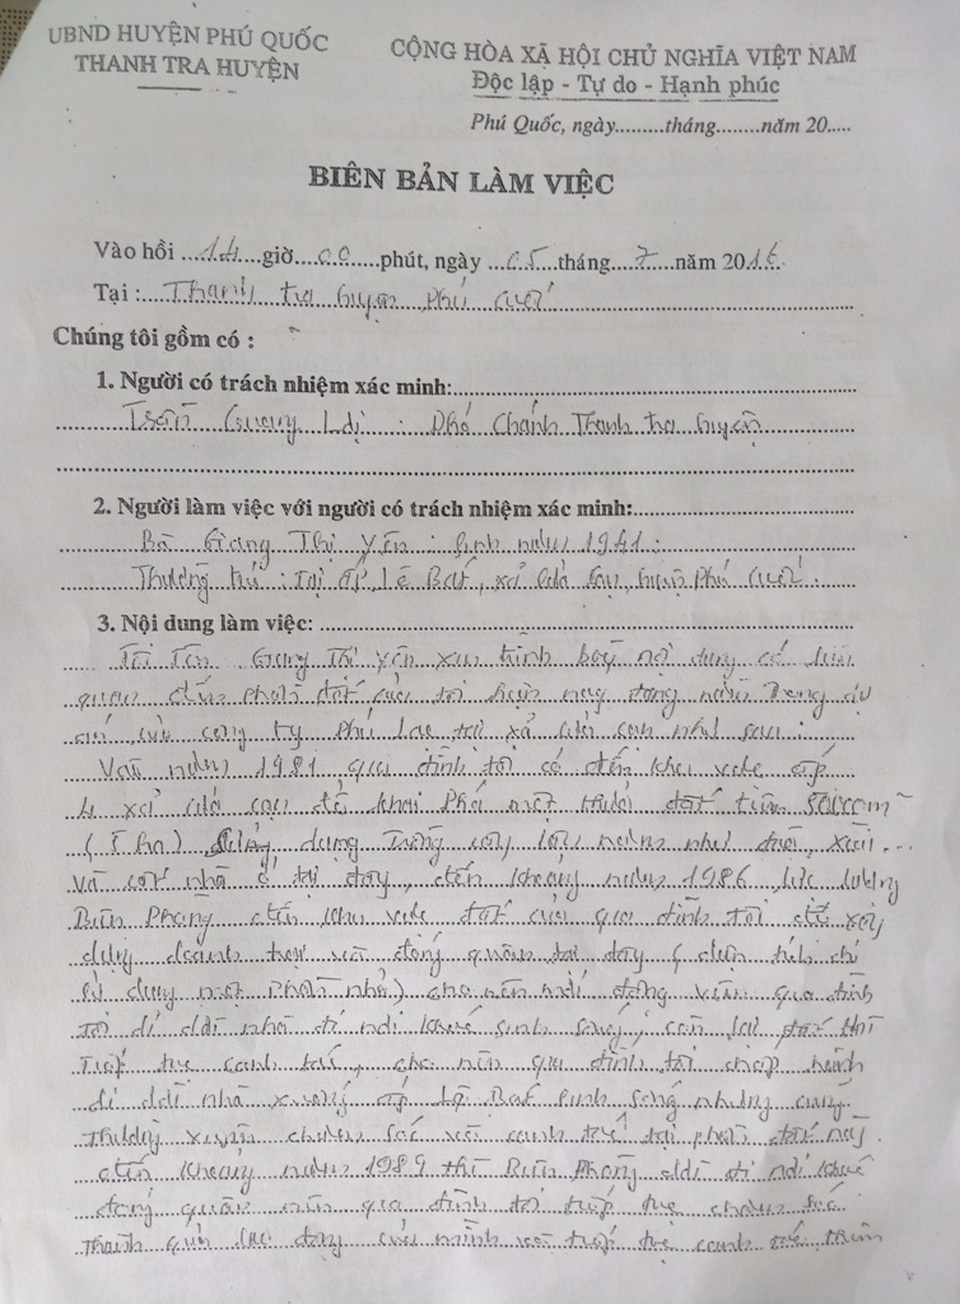 UBND HUYỆN PHÚ QUỐC
THANH TRA HUYỆN
CỘNG HÒA XÃ HỘI CHỦ NGHĨA VIỆT NAM
Độc lập - Tự do - Hạnh phúc
Phú Quốc, ngày.........tháng........năm 20.....
BIÊN BẢN LÀM VIỆC
Vào hồi ...14...giờ...00...phút, ngày ...05...tháng...7...năm 2016.
Tại :...Thanh tra huyện Phú Quốc
Chúng tôi gồm có :
1. Người có trách nhiệm xác minh:
Trần Quang Lợi : Phó Chánh Thanh tra huyện
2. Người làm việc với người có trách nhiệm xác minh:
Bà Giang Thị Yến : Sinh năm 1941 :
Thường trú : Tại ấp Lê Bát, xã Cửa Cạn, huyện Phú Quốc.
3. Nội dung làm việc:
Tôi tên Giang Thị Yến xin trình bày nội dung có liên
quan đến phần đất của tôi hiện nay đang nằm trong dự
án của công ty Phú Lạc tại xã Cửa Cạn như sau :
Vào năm 1981 gia đình tôi có đến khu vực ấp
4 xã Cửa Cạn để khai phá một thửa đất
dụng trồng cây lâu năm như xoài...
và cất nhà ở tại đây, đến khoảng năm 1986 lực lượng
Biên Phòng đến khu vực đất của gia đình tôi để xây
dựng doanh trại và đóng quân tại đây ( chỉ
sử dụng một phần nhỏ) cho nên gia đình
tôi di dời nhà đi nơi khác sinh sống, còn lại đất thì
tiếp tục canh tác, cho nên gia đình tôi chấp hành
di dời nhà xuống ấp Lê Bát sinh sống nhưng cũng
thường xuyên chăm sóc và canh tác tại phần đất này.
đến khoảng năm 1989 thì Biên Phòng dời đi nơi khác
đóng quân nên gia đình tôi tiếp tục chăm sóc
của mình và tiếp tục canh tác trên